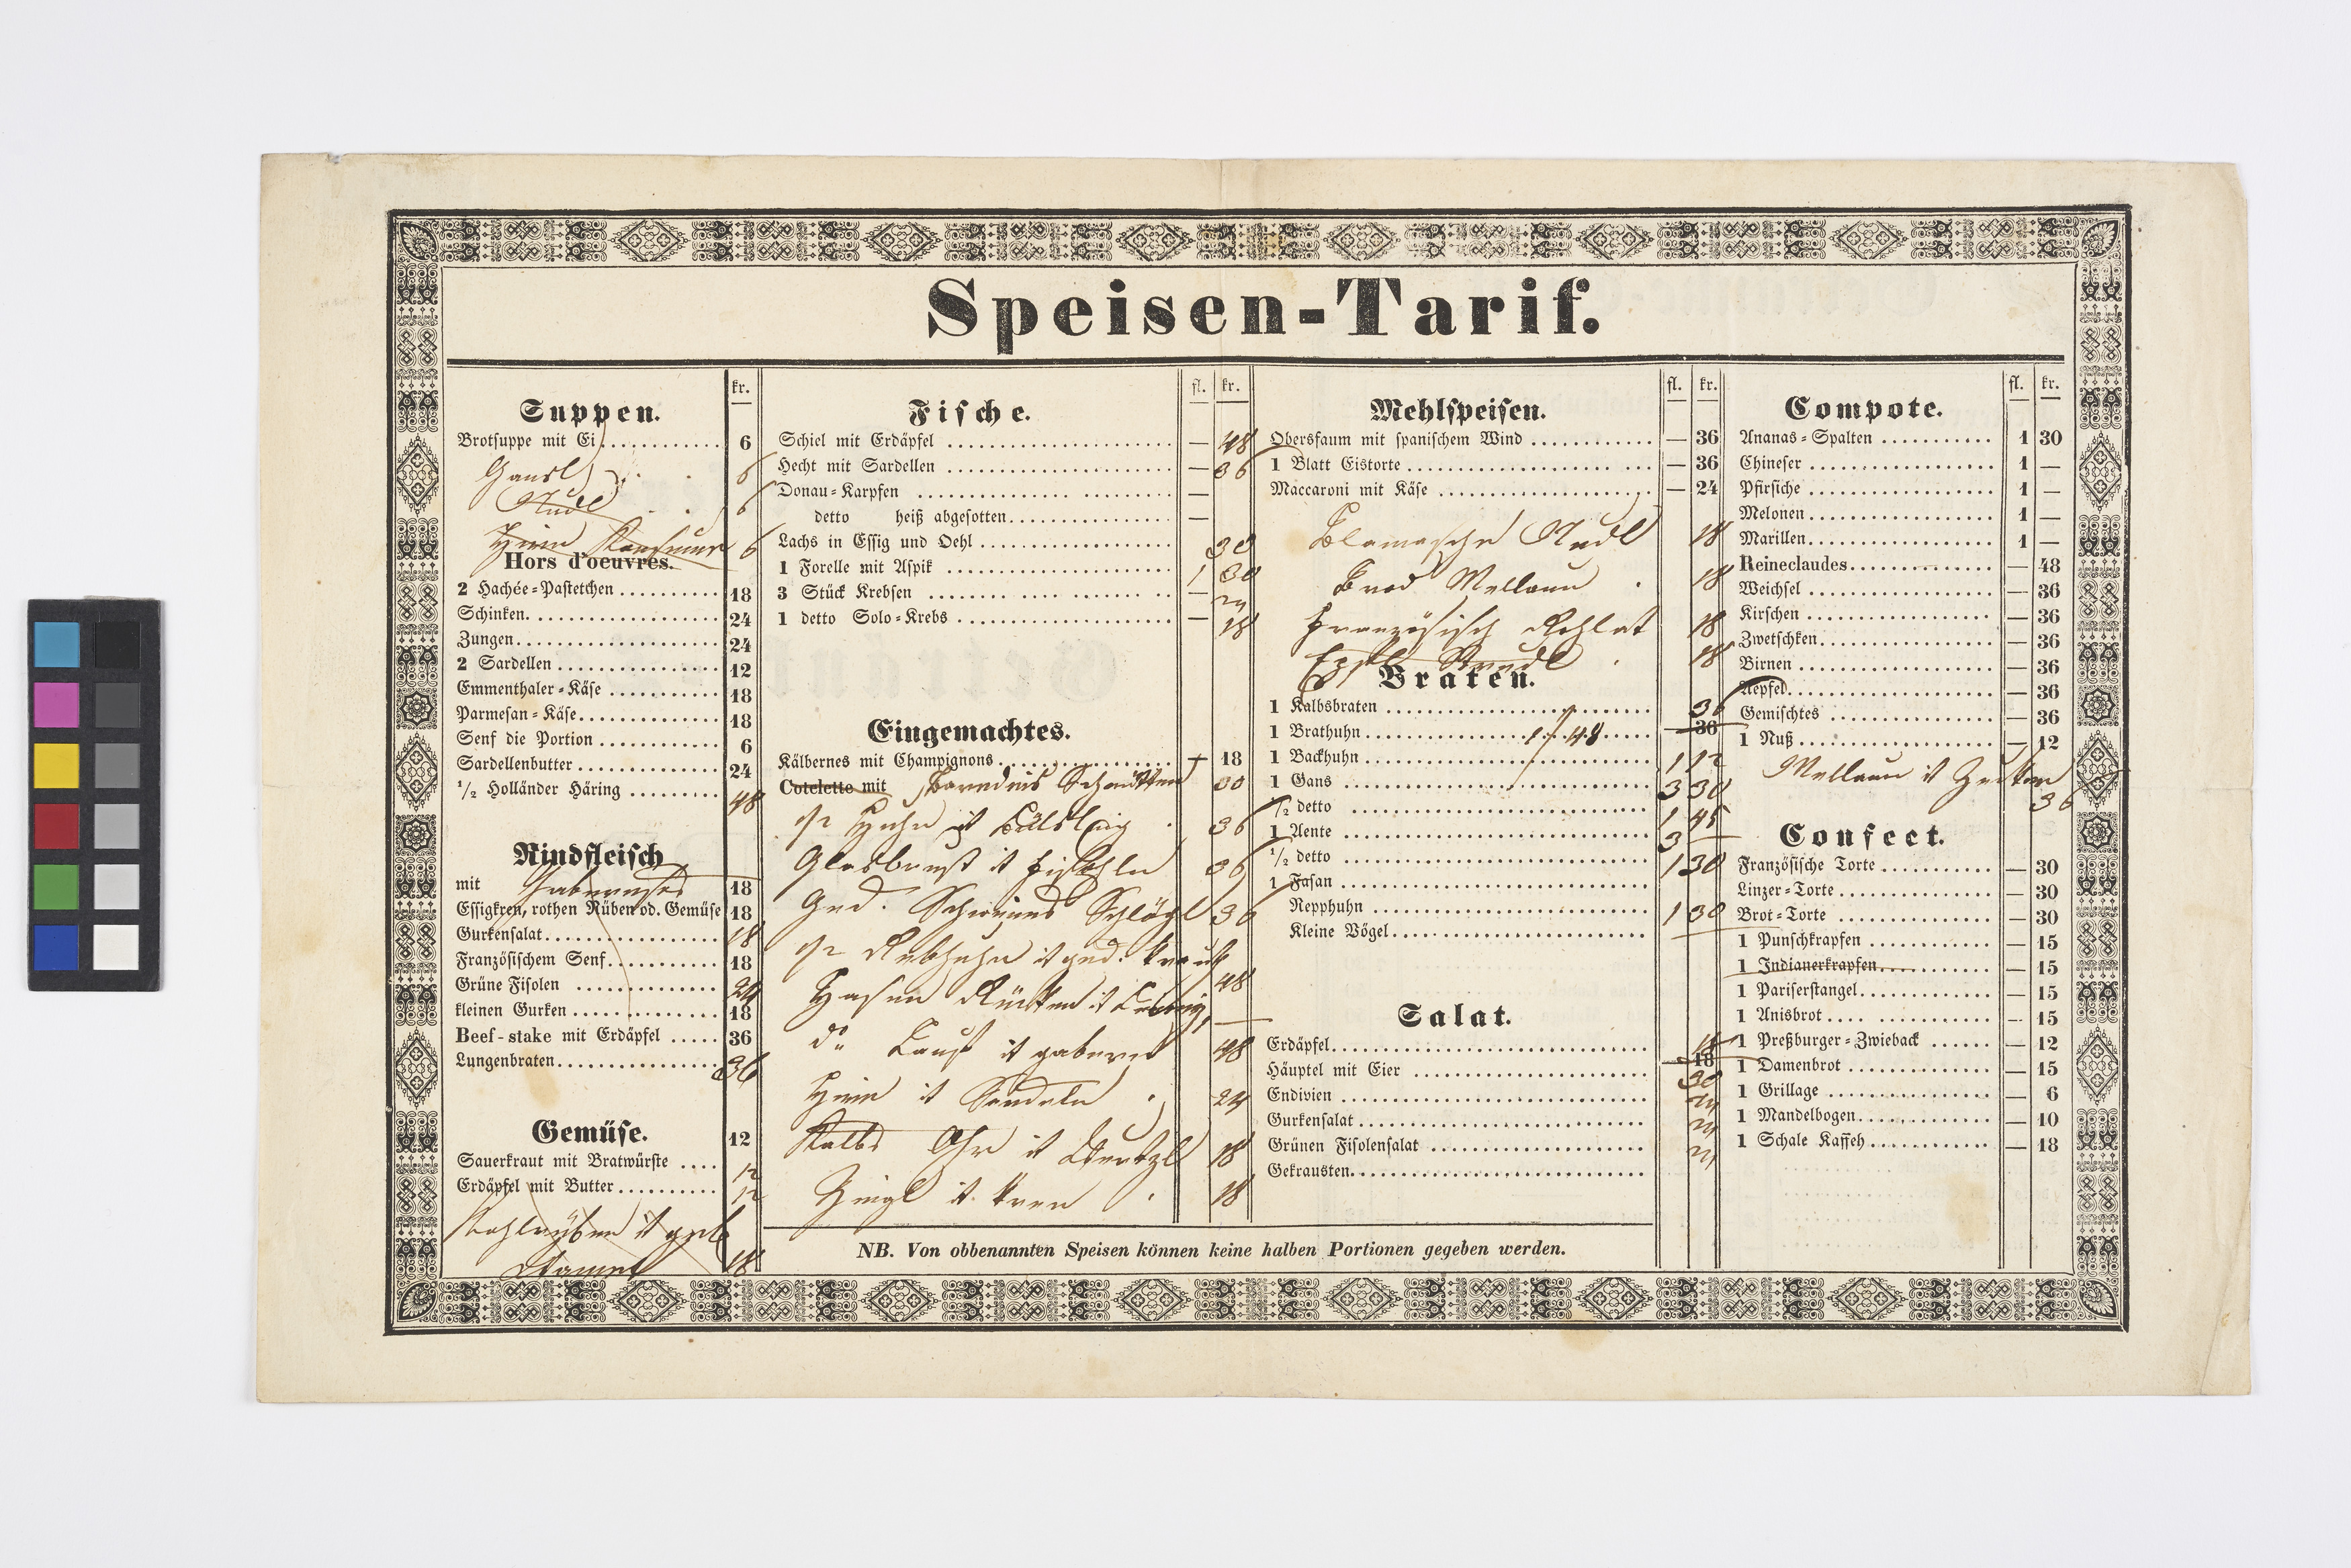 Speisen-Tarif.
kr.
Suppen.
Brotsuppe mit Ei 6
Gansl 6
Nudl 6
Hirn 6
Hors d'oeuvres.
2 Hachée-Pastetchen 18
Schinken 24
Zungen 24
2 Sardellen 12
Emmenthaler-Käse 18
Parmesan-Käse 18
Senf die Portion 6
Sardellenbutter 24
1/2 Holländer Häring 48
Rindfleisch
mit 18
Essigkren, rothen Rüben od. Gemüse 18
Gurkensalat 18
Französischem Senf 18
Grüne Fisolen 24
kleinen Gurken 18
Beef-stake mit Erdäpfel 36
Lungenbraten 36
Gemüse. 12
Sauerkraut mit Bratwürste 12
Erdäpfel mit Butter 12
Kohlrüben 18
fl. kr.
Fische.
Schiel mit Erdäpfel — 48
Hecht mit Sardellen — 36
Donau-Karpfen —
detto heiß abgesotten —
Lachs in Essig und Oehl 30
1 Forelle mit Aspik 1 30
3 Stück Krebsen — 24
1 detto Solo-Krebs — 18
Eingemachtes.
Kälbernes mit Champignons 18
Cotelette mit 30
1/2 Huhn it 36
it 36
Ged. Schweines Schlögl 36
1/2 Rebhuhn it ged. Kraut 48
Hasen Rücken it
do it 48
Hirn it 24
Kalbs Ohr it 18
it Kren 18
fl. kr.
Mehlspeisen.
Obersfaum mit spanischem Wind — 36
1 Blatt Eistorte — 36
Maccaroni mit Käse — 24
Nudl 18
18
Französisch 18
Strudl 18
Braten.
1 Kalbsbraten 36
1 Brathuhn 1 f 48 — 36
1 Backhuhn 1 12
1 Gans 3 30
1/2 detto 1 45
1 Aente 3 —
1/2 detto 1 30
1 Fasan
Repphuhn 1 30
Kleine Vögel
Salat.
Erdäpfel 18
Häuptel mit Eier — 18 30
Endivien 24
Gurkensalat 24
Grünen Fisolensalat 24
Gekrausten
fl. kr.
Compote.
Ananas-Spalten 1 30
Chineser 1 —
Pfirsiche 1 —
Melonen 1 —
Marillen 1 —
Reineclaudes — 48
Weichsel — 36
Kirschen — 36
Zwetschken — 36
Birnen — 36
Aepfel — 36
Gemischtes — 36
1 Nuß — 12
it 36
Confect.
Französische Torte — 30
Linzer-Torte — 30
Brot-Torte — 30
1 Punschkrapfen — 15
1 Indianerkrapfen — 15
1 Pariserstangel — 15
1 Anisbrot — 15
1 Preßburger-Zwieback — 12
1 Damenbrot — 15
1 Grillage — 6
1 Mandelbogen — 10
1 Schale Kaffeh — 18
NB. Von obbenannten Speisen können keine halben Portionen gegeben werden.